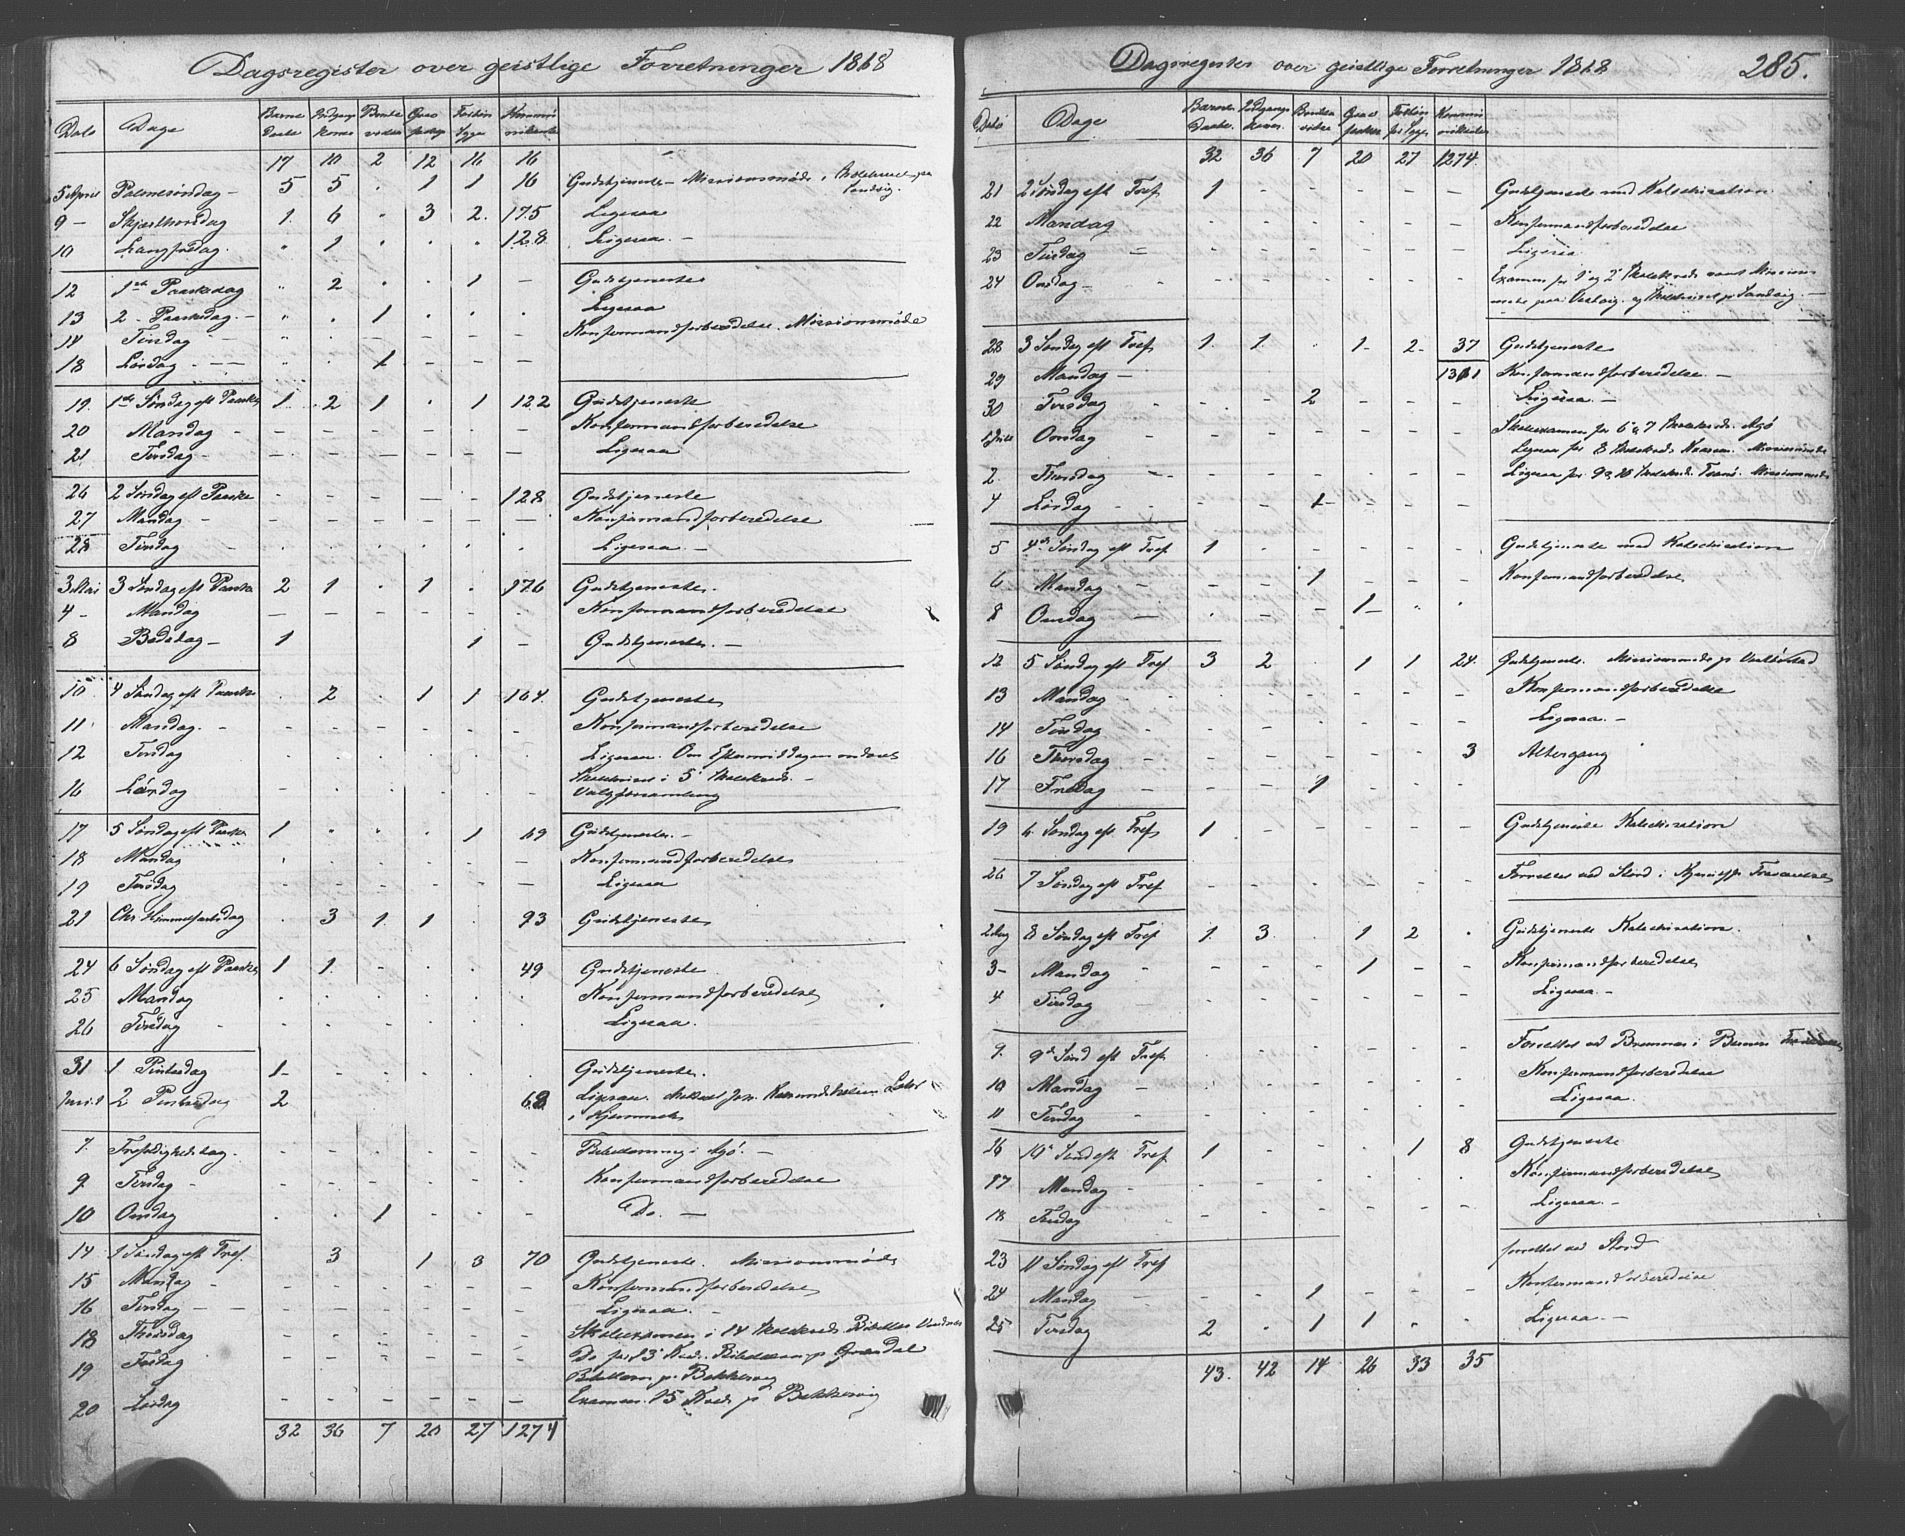 Dagsregister over geistlige Forretninger 1868
Dato Dage Barne Daab Indgangs Kones Brude vielser Grav fæstelse Forkyn Lysn Kommu nikanter
17 10 2 12 16 16
5 April Palmesøndag - 5 5 . 1 1 16 Gudstjeneste - Missionsmøde i Skolehuset paa Sandvig.
9 - Skjærthorsdag 1. 6 . 3 2. 175 Ligesaa
10 Langfredag. " 1 . . . 128 Ligesaa. -
12 1ste Paaskedag " 2 . . 1 - Gudstjeneste
13 2 - Paaskedag. - " . 1 . . . Ligesaa
14 Tirsdag - - - - - - Konfirmandforberedelse. Missionsmøde
18 Lørdag - - - 1 - - -
19. 1ste Søndag eft Paaske 1. 2 1 . 1 122 Gudstjeneste
20 Mandag - - - - - - - Konfirmandforberedelse
21 Tirsdag - - - - - - - Ligesaa
26 2 Søndag eft Paaske - - - - - 128 Gudstjeneste
27 Mandag - - - - - - - Konfirmandforberedelse
28 Tirsdag . . . . . . Ligesaa. -
3 Mai 3 Søndag eft Paaske 2 1 . 1 . 176 Gudstjeneste.
4 - Mandag - - - - - - Konfirmandforberedelse
8 Bededag - 1 1 - Gudstjeneste. -
10 4 Søndag eft Paaske . 2 . 1 1 164. Gudstjeneste
11 Mandag. - - - - - - - Konfirmandforberedelse
12 Tirsdag - - - - - - Ligesaa. Om Eftermiddagen
Skolehuset i 5' Skolekreds. -
16 Lørdag - . - - - - Valgforsamling
17 5 Søndag eft Paaske 1 . . . 1 69 Gudstjeneste. -
18 Mandag . . . . . . Konfirmandforberedelse
19 Tirsdag - - - - - - Ligesaa
21 Chr Himmelfartsdag . 3 1 1 . 93 Gudstjeneste
24 6 Søndag eft Paaske 1 1 . . . 49 Gudstjeneste
25 Mandag . . . . . . Konfirmandforberedelse
26 Tirsdag . . . . . . Ligesaa.
31 1 Pintsedag 1- Gudstjeneste.
Juni 1 2 Pintsedag 2 68 Ligesaa.
i Kjømmet
7. Trefoldighedsdag. - - - - - - i Agø. -
9 Tirsdag - - - - - - Konfirmandforberedelse
10 Onsdag . . 1 . - - Do. -
14 1 Søndag eft Tref. 3 1 3 70 Gudstjeneste. Missionsmøde
15 Mandag - - - - - - Konfirmandforberedelse
16 Tirsdag - - - - - - - Ligesaa. -
18 Thorsdag - - - - - - Skoleexamen i 14 Skolekreds
19 Fredag - - - - - - Do for 13' Kreds.
p. Bekkervig
20 Lørdag - - - - - - Examen 15 Kreds p Bekkervig
32 36 7 20 27 1274
Dagsregister over geistlige Forretninger 1868 285.
Dato Dage Barne Daabe. Indgangs Koner. Brude vielse Grav fæstelse Forkyn Lysn Kommu nikanter
32 36 7 20 27 1274
21 2 Søndag eft Tref 1 - - - - - Gudstjeneste med Katechisation
22 Mandag . . . . . . Konfirmandforberedelse
23 Tirsdag - - - - - - - Ligesaa
24 Onsdag - - - - - - - Examen for 1' og 2' Skolekreds samt Missions
møde paa og Skolehuset p Sandvig. -
28 3 Søndag eft Tref 1. 1. . 1- 2- 37 Gudstjeneste
1311
29 Mandag - . . . . . Konfirmandforberedelse -
30 Tirsdag . . 2 - - - Ligesaa. -
1 Juli Onsdag . - - - - - - Skoleexamen for 6' & 7 Skolekreds Agø
Ligesaa for 8 Skolekreds Missionsmøde
2. Thorsdag - - - - - - - Ligesaa for 9 & 10 Skolekreds Missionsmøde
4 Lørdag - - - 1- - - -
5 4de Søndag eft Tref 1 . . . . . Gudstjeneste med Katechisation
6 Mandag - - - 1 - - - Konfirmandforberedelse
8 Onsdag - . . - 1- . .
12 5 Søndag eft Tref 3 2 . 1 1 24. Gudstjeneste. Missionsmøde p
13 Mandag . - - - - - - Konfirmandforberedelse
14 Tirsdag - - - - - - Ligesaa. -
16 Thorsdag - - - - - 3 Altergang
17 Fredag - - - 1 - - -
19 6 Søndag eft Tref 1 - - - - - Gudstjeneste Katechisation
26 7 Søndag eft Tref - - - - - - Forrettet ved Stord i
2 Aug 8 Søndag eft Tref 1. 3. . 1 2 . Gudstjeneste Katechisation.
3 - Mandag - - - 1 - - Konfirmandforberedelse
4 Tirsdag . . . . . . Ligesaa. -
9. 9de Sønd eft Tref. . . . . . . Forrettet ved Bremnes i
10 Mandag - - - - - - Konfirmandforberedelse
11 Tirsdag . . . . . . Ligesaa.
16 10' Sønd eft Tref. 1 - - - 1 8 Gudstjeneste
17 Mandag - . . . . . . Konfirmandforberedelse
18 Tirsdag - - - - - - Ligesaa. -
23 11 Søndag eft Tref forrettet ved Stord
24 Mandag - - - 1 - - - Konfirmandforberedelse
25 Tirsdag 2 . 1 1 . . Ligesaa. -
43. 42 14 26 33 35